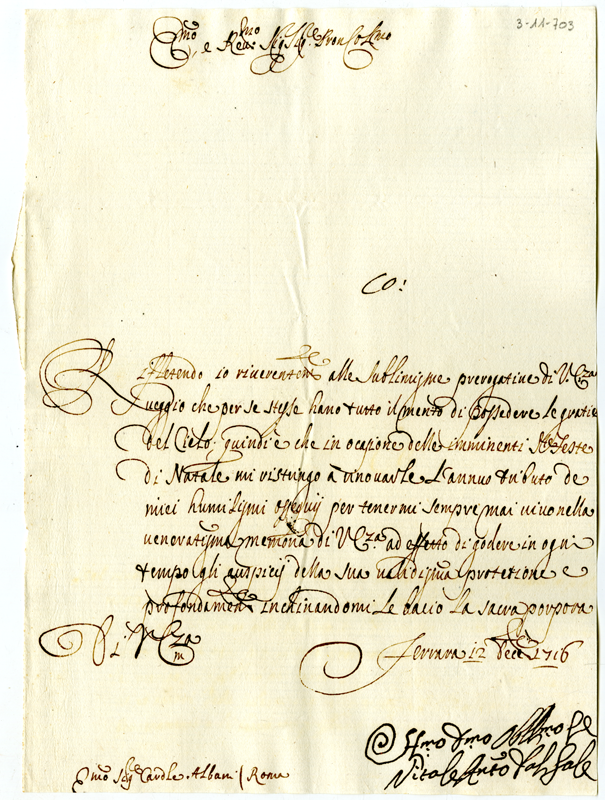 3-11-703
Emo, e Revmo Sigr Sigr Pron Colmo
Co:
Rifletendo io riverentemte alle sublimissime prerogative di V. Eza
veggio che per se stesse hano tutto il merito di possedere le gratie
del Cielo: quindi è che in ocasione delle imminenti Ste Feste
di Natale mi ristringo à rinovarle l'annuo tributo de
miei humilissimi ossequij per tenermi sempre mai vivo nella
veneratissima memoria di V Eza ad effetto di godere in ogni
tempo gli auspicij della sua validissima protetione e
profondamente inchinandomi le bacio la sacra porpora
Di V Eza
Ferrara 12 Decre 1716
Emo Sigr Cardle Albani / Roma
Vitale Anto